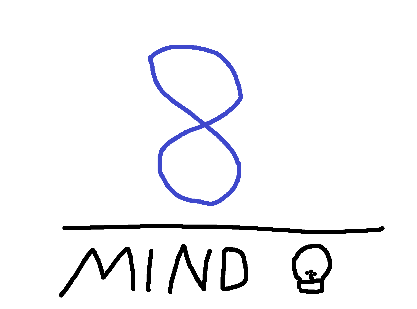 8
MIND